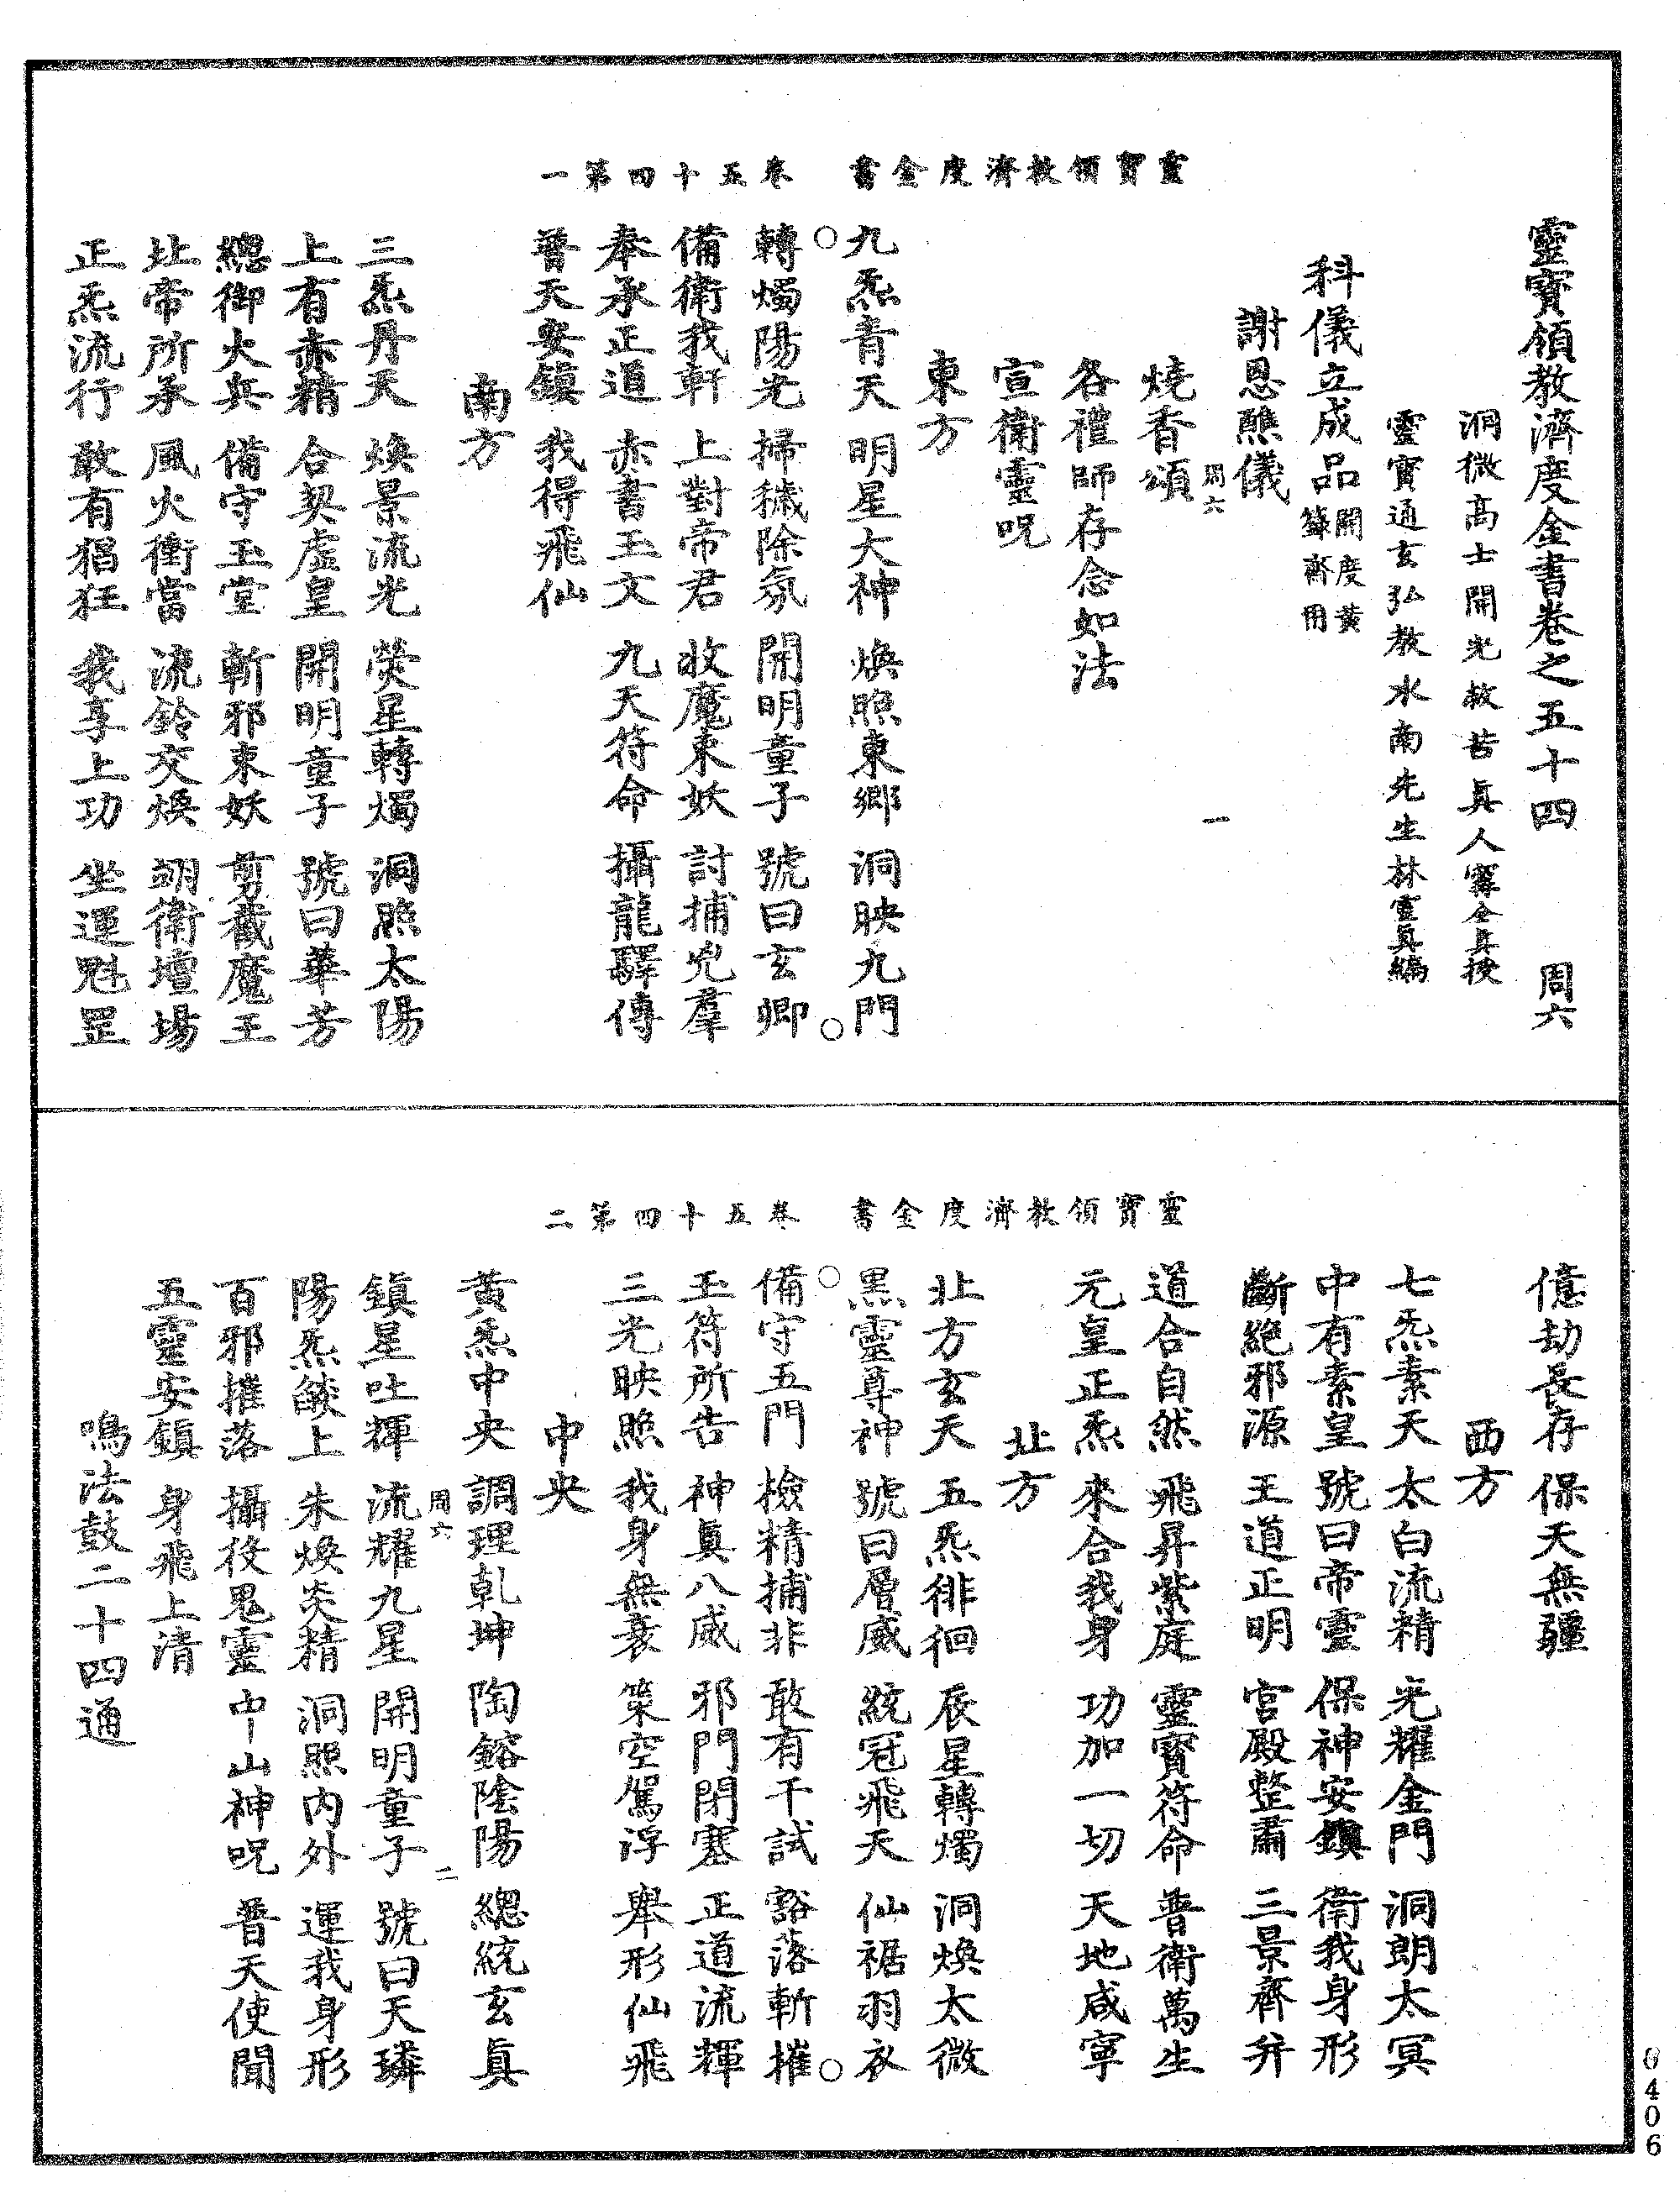 靈寶領教濟度金書 卷五十四第一
靈寶領教濟度金書卷之五十四 周六
洞微高士開光救苦真人甯全真授
靈寶通玄弘教水南先生林靈真編
科儀立成品 開度黃籙齋用
謝恩醮儀
周六 一
燒香頌
各禮師存念如法
宣衛靈呪
東方
九炁青天 明星大神 煥照東鄉 洞映九門
轉燭陽光 掃穢除氛 開明童子 號曰玄卿
備衛我軒 上對帝君 收魔束妖 討捕兇羣
奉承正道 赤書玉文 九天符命 攝龍驛傳
普天安鎮 我得飛仙
南方
三炁丹天 煥景流光 熒星轉燭 洞照太陽
上有赤精 合契虛皇 開明童子 號曰華芳
總御火兵 備守玉堂 斬邪束妖 剪截魔王
北帝所承 風火衝當 流鈴交煥 翊衛壇場
正炁流行 敢有猖狂 我享上功 坐運魁罡
靈寶領教濟度金書 卷五十四第二
億劫長存 保天無疆
西方
七炁素天 太白流精 光耀金門 洞朗太冥
中有素皇 號曰帝靈 保神安鎮 衛我身形
斷絕邪源 王道正明 宮殿整肅 三景齊并
道合自然 飛昇紫庭 靈寶符命 普衛萬生
元皇正炁 來合我身 功加一切 天地咸寧
北方
北方玄天 五炁徘徊 辰星轉燭 洞煥太微
黑靈尊神 號曰層威 統冠飛天 仙裾羽衣
備守五門 檢精捕非 敢有干試 豁落斬摧
玉符所告 神真八威 邪門閉塞 正道流輝
三光映照 我身無衰 策空駕浮 舉形仙飛
中央
黃炁中央 調理乾坤 陶鎔陰陽 總統玄真
周六 二
鎮星吐輝 流耀九星 開明童子 號曰天璘
陽炁燄上 朱煥炎精 洞照內外 運我身形
百邪摧落 攝伇鬼靈 中山神呪 普天使聞
五靈安鎮 身飛上清
鳴法鼓二十四通
0406